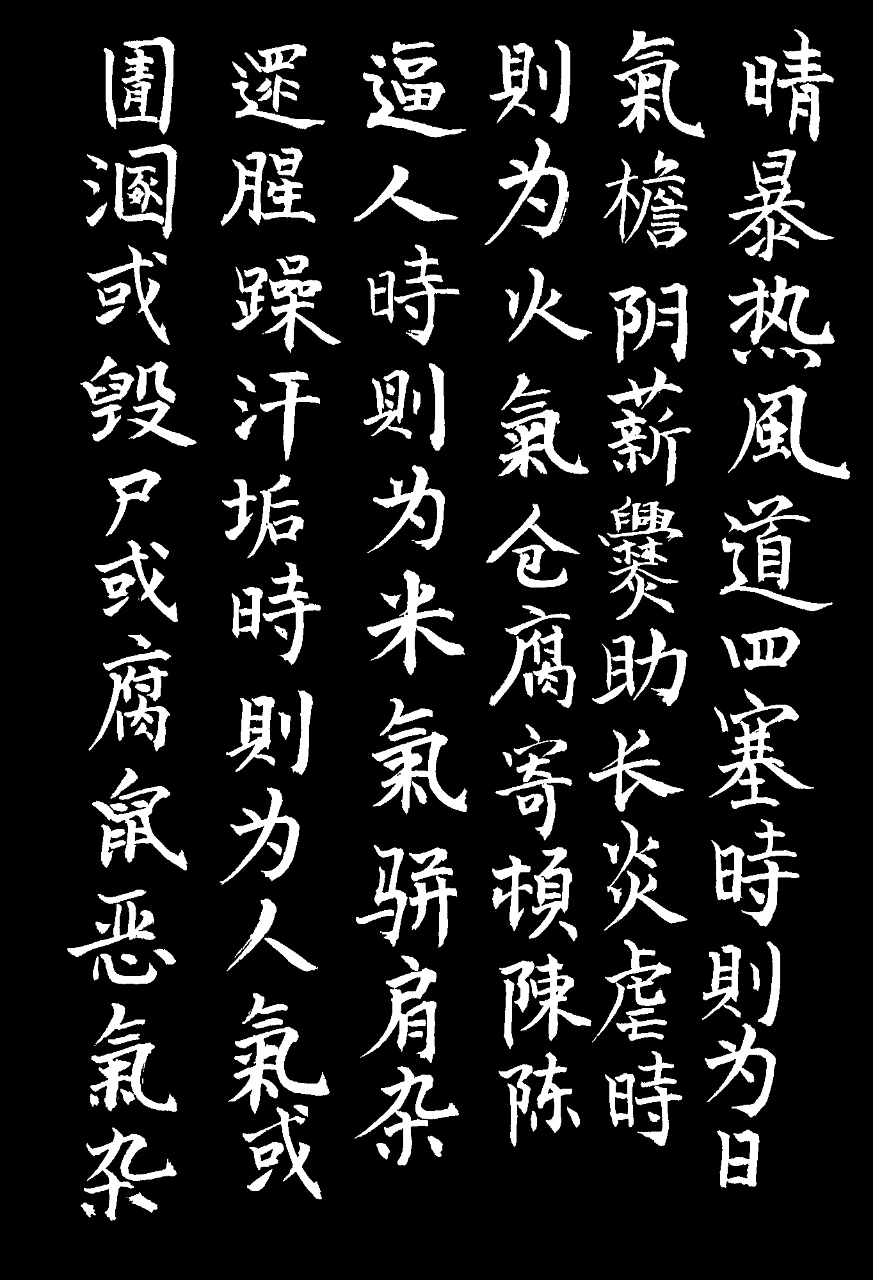 晴暴热風道四塞時則为日
氣檐阴薪爨助长炎虐時
則为火氣仓腐寄頓陳陈
逼人時則为米氣骈肩杂
遝腥躁汗垢時則为人氣或
圊溷或毁尸或腐鼠恶氣杂